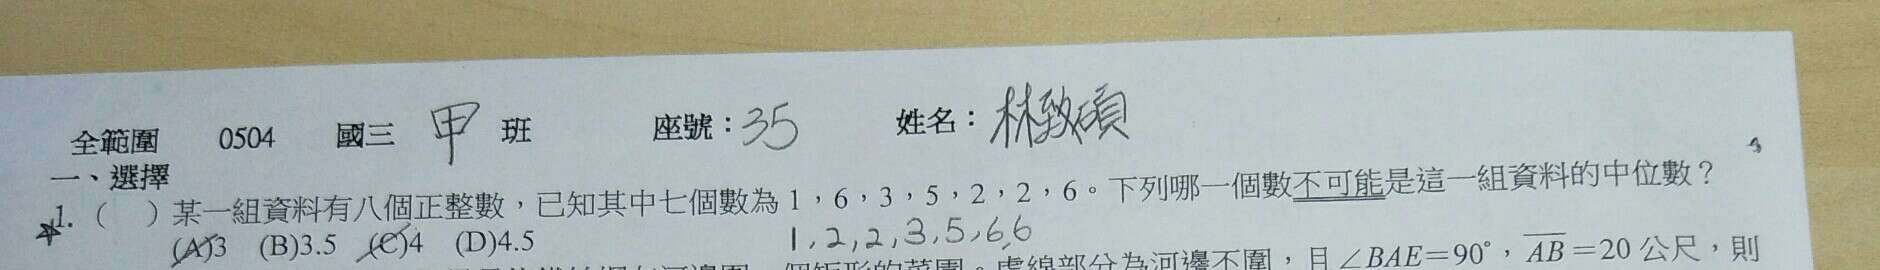 全範圍 0504 國三 甲 班 座號：35 姓名：林致碩
一、選擇
1.（ ）某一組資料有八個正整數，已知其中七個數為 1，6，3，5，2，2，6。下列哪一個數不可能是這一組資料的中位數？
(A)3 (B)3.5 (C)4 (D)4.5
1,2,2,3,5,6,6
一個矩形的菜圃。虛線部分為河邊不圍，且∠BAE=90°，AB=20 公尺，則